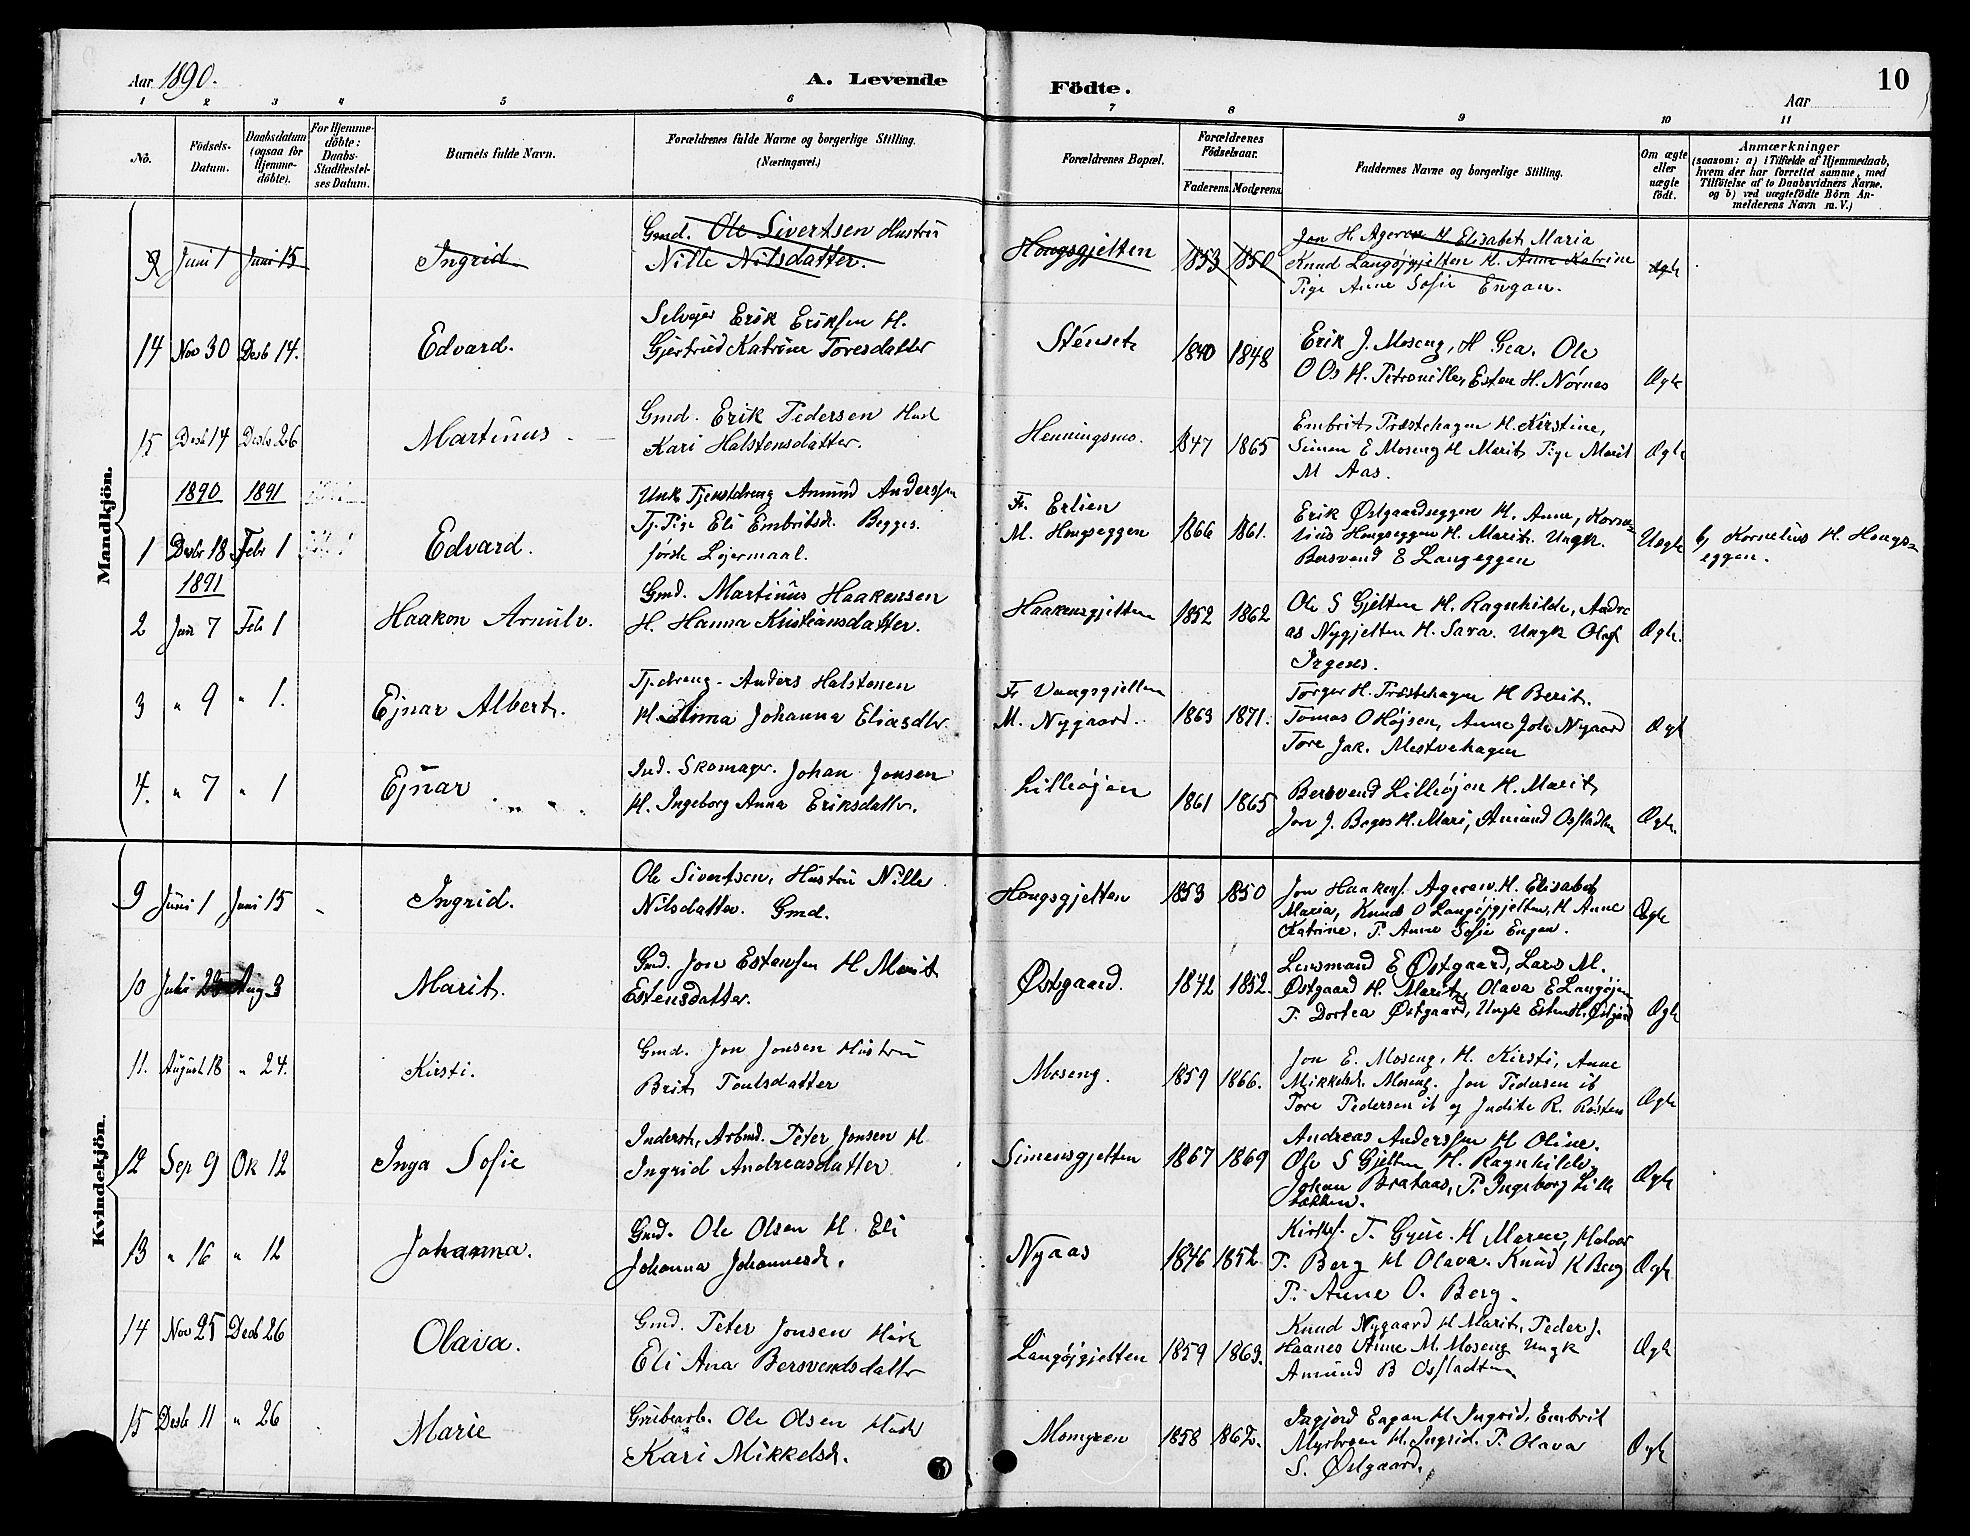 Aar 1890.
A. Levende Födte.
10
Aar
1 2 3 4 5 6 7 8 9 10 11
No.
Födsels-Datum.
Daabsdatum (ogsaa for Hjemme-döbte).
For Hjemme-döbte: Daabs-Stadfestel-ses Datum.
Barnets fulde Navn.
Forældrenes fulde Navne og borgerlige Stilling. (Næringsvei.)
Forældrenes Bopæl.
Forældrenes Födselsaar.
Faderens. Moderens.
Faddernes Navne og borgerlige Stilling.
Om ægte eller uægte födt.
Anmærkninger
(saasom: a) i Tilfælde af Hjemmedaab, hvem der har forrettet samme, med Tilföielse af to Daabsvidners Navne. og b) ved uægtefödte Börn An-melderens Navn m. V.)
Mandkjön.
9 Juni 1 Juni 15 Ingrid
Gmd. Ole Sivertsen Hustru
Nille Nilsdatter.
Hongsgjelten 1853 1850
Jon H. Ageren H. Elisabet Maria
Knud Langøjgjelten H. Anne Katrine
Pige Anne Sofie Engan.
Ægte
14 Nov 30 Desb 14. Edvard.
Selvejer Erik Eriksen H.
Gjertrud Katrine Toresdatter
Stenset 1840 1848
Erik J. Moseng, H Gea. Ole
O Os H. Petronille, Esten H. Nörnes
Ægte
15 Desb 14 Desb 26 Martinus
Gmd. Erik Pedersen Hust
Kari Halstensdatter.
Henningsmo. 1847 1865
Embrit Træstehagen H. Kirstine,
Simen E Moseng H Marit, Pige Marit
M Aas.
Ægte
1890 1891
1 Desbr 18 Febr 1 Edvard.
Unk Tjenstdreng Amund Anderssen
Tj. Pige Eli Embritsd. Begges
første Lejermaal.
Fr. Erlien
M. Hongseggen 1866 1861.
Erik Østgaardseggen H. Anne, Korne-
lius Hongseggen H. Marit. Ungk.
Bersvend E Langeggen
Uægte
b, Kornelius H. Hongs-
eggen.
1891
2 Jan 7 Feb 1 Haakon Arnulv.
Gmd. Martinus Haakensen
H. Hanna Kristiansdatter.
Haakensgjelten 1852 1862
Ole S Gjelten H. Ragnhilde, Andre
as Nygjelten H. Sara. Ungk Olaf
Irgens.
Ægte.
3 " 9 " 1. Ejnar Albert.
Tj.dreng. Anders Halstensen
H. Alma Johanna Eliasdtr.
Fr Vangsgjelten
M. Nygaard. 1863 1871.
Torger H. Træstehagen H Berit.
Tomas O Højsen, Anne Joh Nygaard
Tore Jak. Mestvehagen
Ægt
4. " 7 " 1 Ejnar " "
Ind. Skomager. Johan Jonsen
H. Ingeborg Anna Eriksdattr.
Lilleøjen 1861 1865
Bersvend Lilleøjen H. Marit,
Jon J. Bages H. Mari, Amund Osfladten
Ægte.
Kvindekjön.
9 Juni 1 Juni 15 Ingrid.
Ole Sivertsen, Hustru Nille
Nilsdatter. Gmd.
Hongsgjelten 1853 1850
Jon Haakens. Ageren H. Elisabet
Maria, Knud O Langøjgjelten, H Anne
Katrine. P. Anne Sofie Engan.
Ægte
10 Juli Aug 3 Marit.
Gmd. Jon Estensen H Marit
Estensdatter.
Østgaard. 1842 1852.
Lensmand E Østgaard, Lars M.
Østgaard H. Marit, Olava E Langøjen
P. Dortea Østgaard, Ungk Esten H. Østgaard
Ægte
11. August 18 " 24. Kirsti.
Gmd. Jon Jonsen Hustru
Brit Poulsdatter
Moseng. 1859 1866.
Jon E. Moseng, H. Kirsti, Anne
Mikkelsd. Moseng. Jon Pedersen ib
Tore Pedersen ib og Judite R. Røsten
Ægte
12 Sep 9 Ok 12 Inga Sofie
Inderst, Arbmd. Peter Jonsen H
Ingrid Andreasdatter.
Simensgjelten 1867 1869
Andreas Anderssen H Oline.
Ole S Gjelten H. Ragnhilde,
Johan Brataas, P. Ingeborg Lille
bakken.
Ægte
13 " 16 " 12 Johanna.
Gmd. Ole Olsen H. Eli
Johanna Johannesd.
Nyaas 1846 1852.
Kirkes. T. H Maren, Halvor
T. Berg H Olava. Knud K Berg
P. Anne O. Berg.
Ægte
14 Nov 25 Desb 26 Olava.
Gmd. Peter Jonsen Hust
Eli Ana Bersvendsdattr
Langøjgjelten 1859 1863.
Knud Nygaard H Marit, Peder J.
Haanes Anne M. Moseng Ungk
Amund B Osfladten
Ægte
15 Desb 11 " 26 Marie
Grubearb. Ole Olsen Hust
Kari Mikkelsd.
Momyren 1858 1862.
Ingjerd Engan H. Ingrid, Embrit
Myrbroen H. Ingrid. P. Olava
S. Østgaard.
Ægte